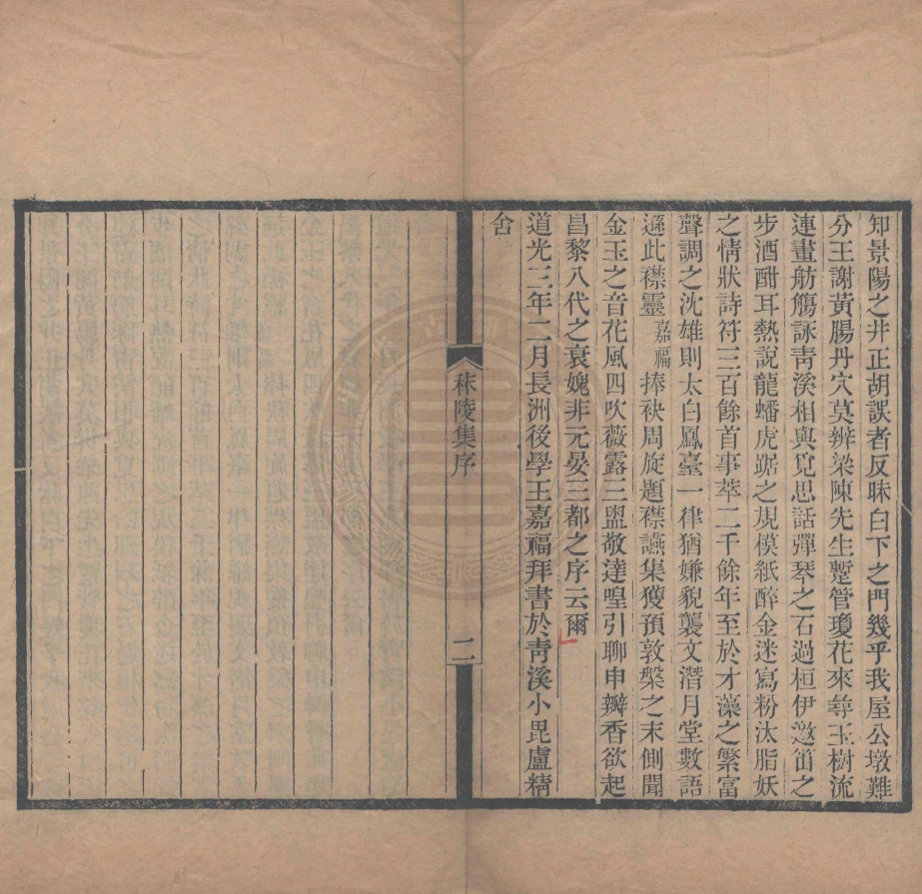 知景陽之井正胡誤者反昧白下之門幾乎我屋公墩難
分王謝黃腸丹穴莫辨梁陳先生蹔管瓊花來尋玉樹流
連畫舫觴詠靑溪相與覓思話彈琴之石過桓伊邀笛之
步酒酣耳熱說龍蟠虎踞之規模紙醉金迷寫粉汰脂妖
之情狀詩符三百餘首事萃二千餘年至於才藻之繁富
聲調之沈雄則太白鳳臺一律猶嫌貌襲文潛月堂數語
遜此襟靈嘉福捧袂周旋題襟讌集獲預敦槃之末側聞
金玉之音花風四吹薇露三盥敬達喤引聊申瓣香欲起
昌黎八代之衰媿非元晏三都之序云爾
道光三年二月長洲後學王嘉福拜書於靑溪小毘盧精
舍
秣陵集序
二